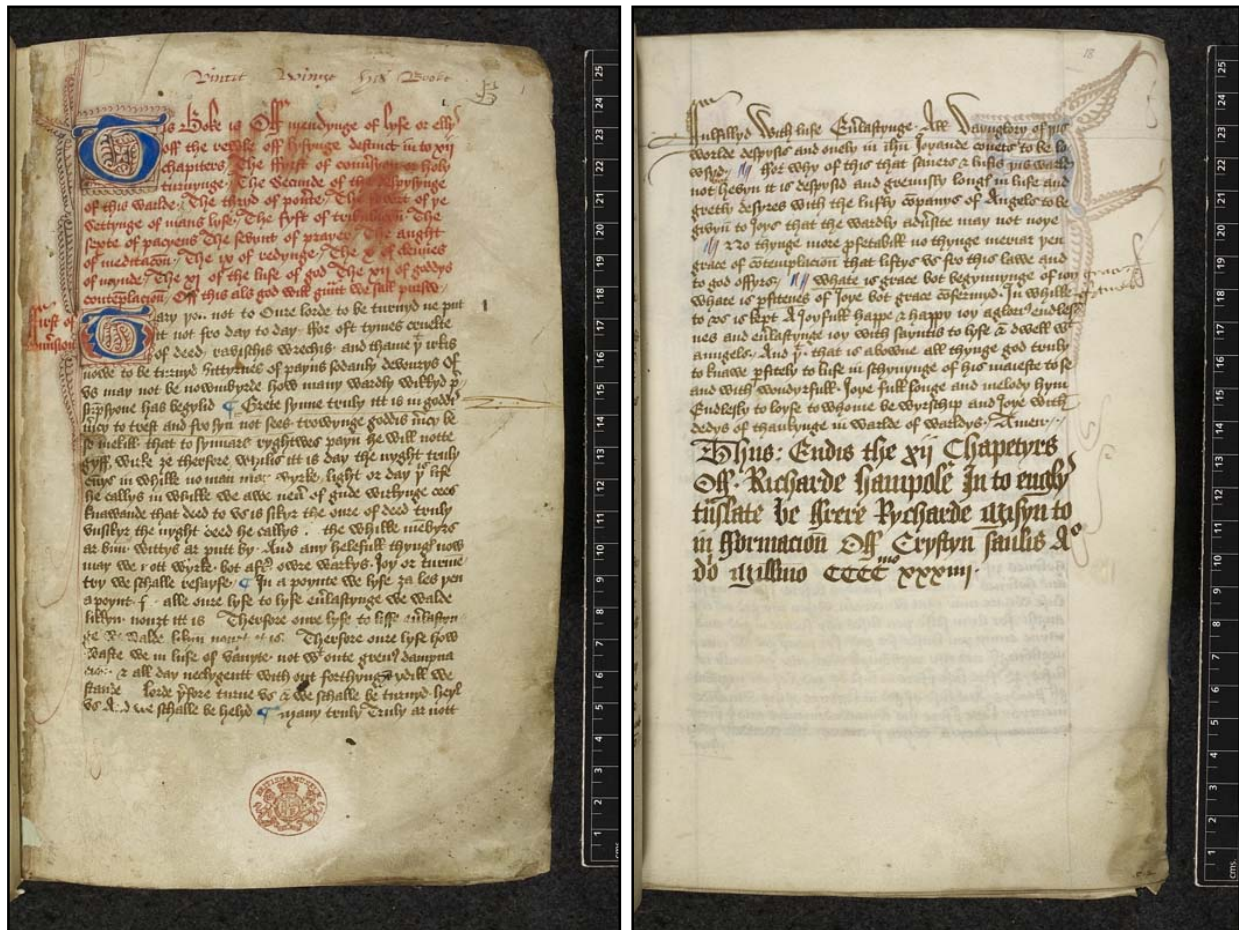 Vincit Winge his Booke
Þis Boke is Off mendynge of lyfe or ellys
off the rewle off lyfynge destinct in to xii
chapiters The ffyrst of conuersion or holy
turnynge The Secunde of the despysynge
of this warlde The thryd of pouerte The fowrt of þe
settynge of mans lyfe The fyft of tribulacion The
sexte of pacyens The sevynt of prayer The aught
of meditacion The ix of redynge The X of clennes
of mynde The XI of the lufe of god The XII of goddys
contemplacion Off this als god will grant we sall pursw
First of
Tary þou not to Oure lorde to be turnyd ne put
itt not fro day to day ffor oft tymes cruelte
of deed ravischis wrechis and thame þt irkis
nowe to be turnyd bittyrnes of payns sodanly devourys Of
vs may not be nowmbyrde how many wardly wikkyd
has begylid Grete synne truly itt is in goddis
mercy to trest and fro syn not sees trowynge godis mercy be
so mekill that to synnars ryghtwes payn he will notte
gyff wirke ȝe therfore whilis itt is day the nyght truly
cums in whilke no man may wyrke light or day þis life
he callys in whilke we awe neuer of gude wirkynge cees
knawande that deed to vs is sikyr the oure of deed truly
vnsikyr the nyght deed he callys the whilke membyrs
ar bun wittys ar putt by And any helefull thyngis now
may we nott wyrke bot after owre warkys Joy or turmen
try we schalle resayfe In a poynte we lyfe ȝa les þen
a poynt alle oure lyfe to lyfe euerlastynge we walde
likkyn noȝt itt is Therfore oure lyfe to liffe euerlastyn
ge walde likyn noȝt it is Therfore oure lyfe how
waste we in lufe of vanyte not wt oute greuus dampna
cion & all day neclygentt with out forthynkyng ydill we
stande lorde þerfore turne vs & we schalle be turnyd heyl
vs And we schalle be helyd many truly Truly ar nott
18
ffulfillyd With lufe Euerlastynge All Vaynglory of þis
worlde despysis and onely in ihu Joyande couets to be lo
wsyd ffor why of this that sauers & lufis þis warld
not hevyn it is despysid and greuusly longis in lufe and
gretly desyres with the lufly companys of Angels to be
gevyn to Joys that the wardly aduersite may not noye
No thynge more profetabill no thynge meriar þen
grace of contemplacion that liftys vs fro this lawe and
to god offyrs whate is grace bot begynnynge of ioy
whate is perfitenes of Joye bot grace confermyd In whilke
to vs is kept A Joyfull happe & happy ioy a glorius endles
nes and euerlastynge ioy with sayntis to lyfe & dwell wt
aungels And þt that is abowne all thynge god truly
to knawe perfitely to lufe in schynynge of his maieste to se
and with wondyrfull Joye full songe and melody hym
Endlesly to loyse to whome be wyrschip and Joye with
dedys of thankynge in warlde of warldys Amen
Thus Endis the xij Chapetyrs
Off Richarde Hampole In to englys
translate be ffrere Rycharde Misyn to
in fformacion Off Crystyn saulis Ao
do Millimo CCCCmo xxxiiij